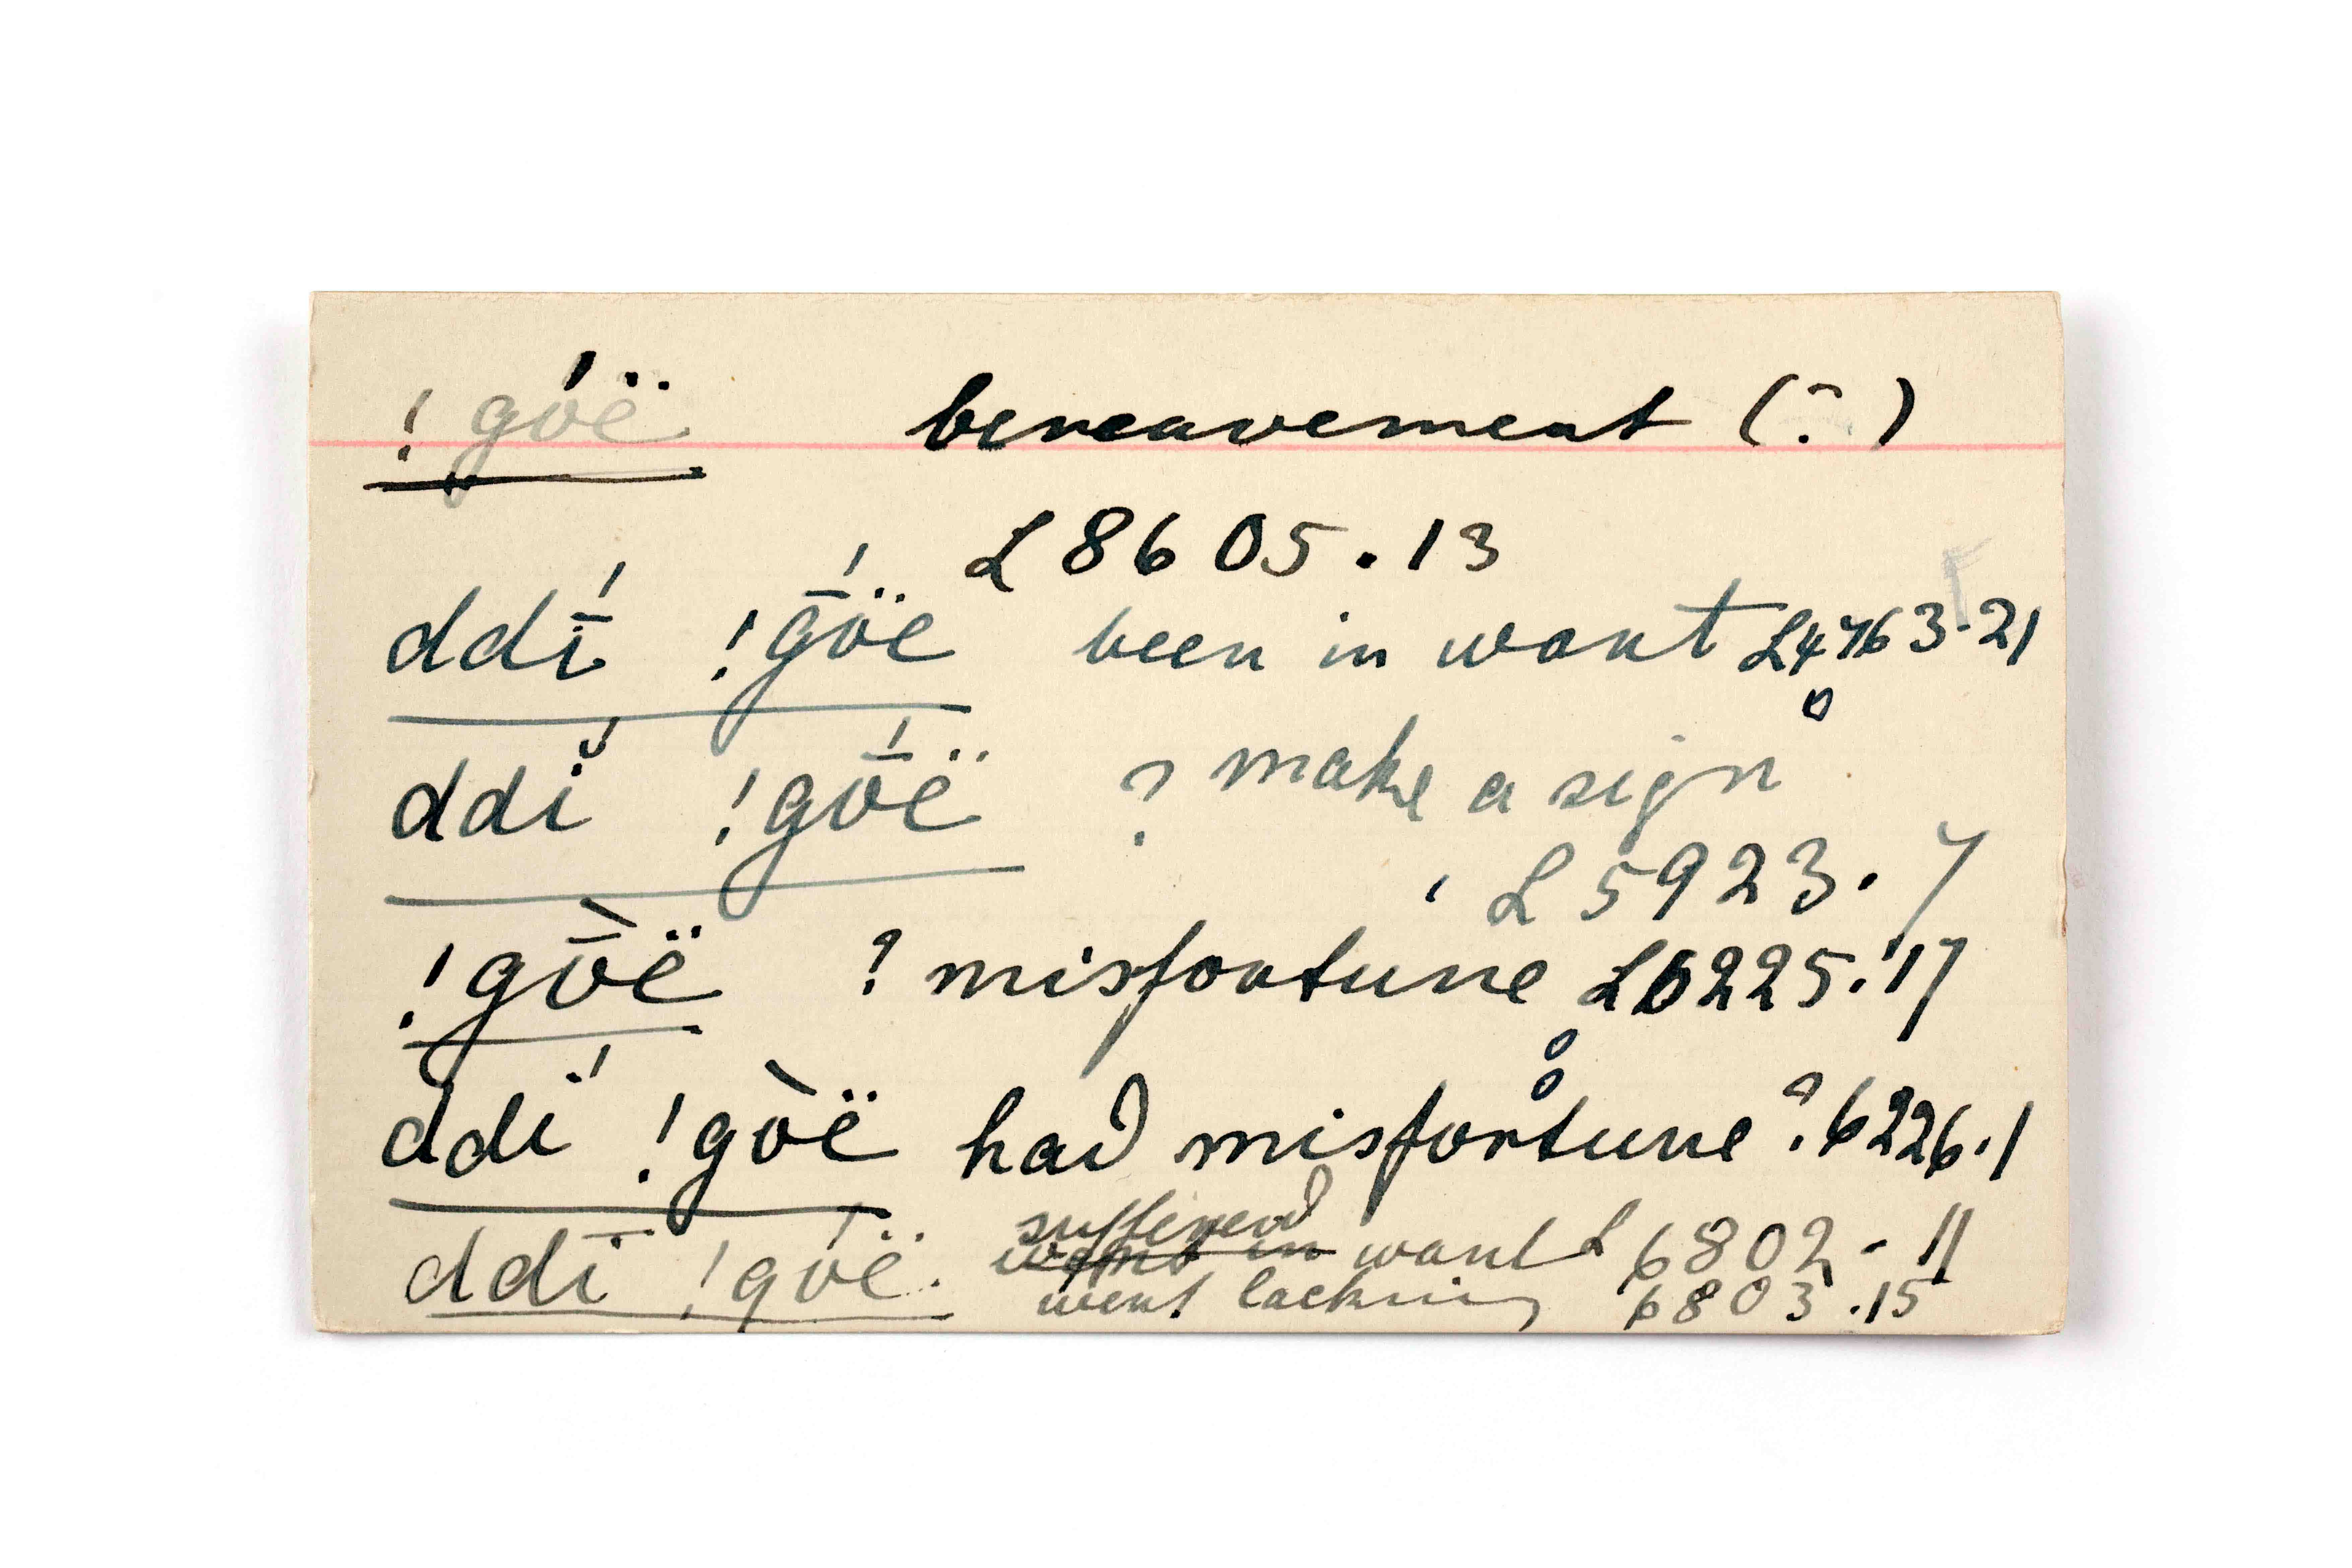 !góë bereavement (?)
L 8605.13
ddī́ !gṓë been in want L4763.21
ddĭ́ !gṓë ? make a sign
L 5923.7
!gṑë ? misfortune L6225.17
ddí !gòë had misfortune ? 6226.1
suffered
ddī !góë. went in want L 6802-11
went lacking 6803.15